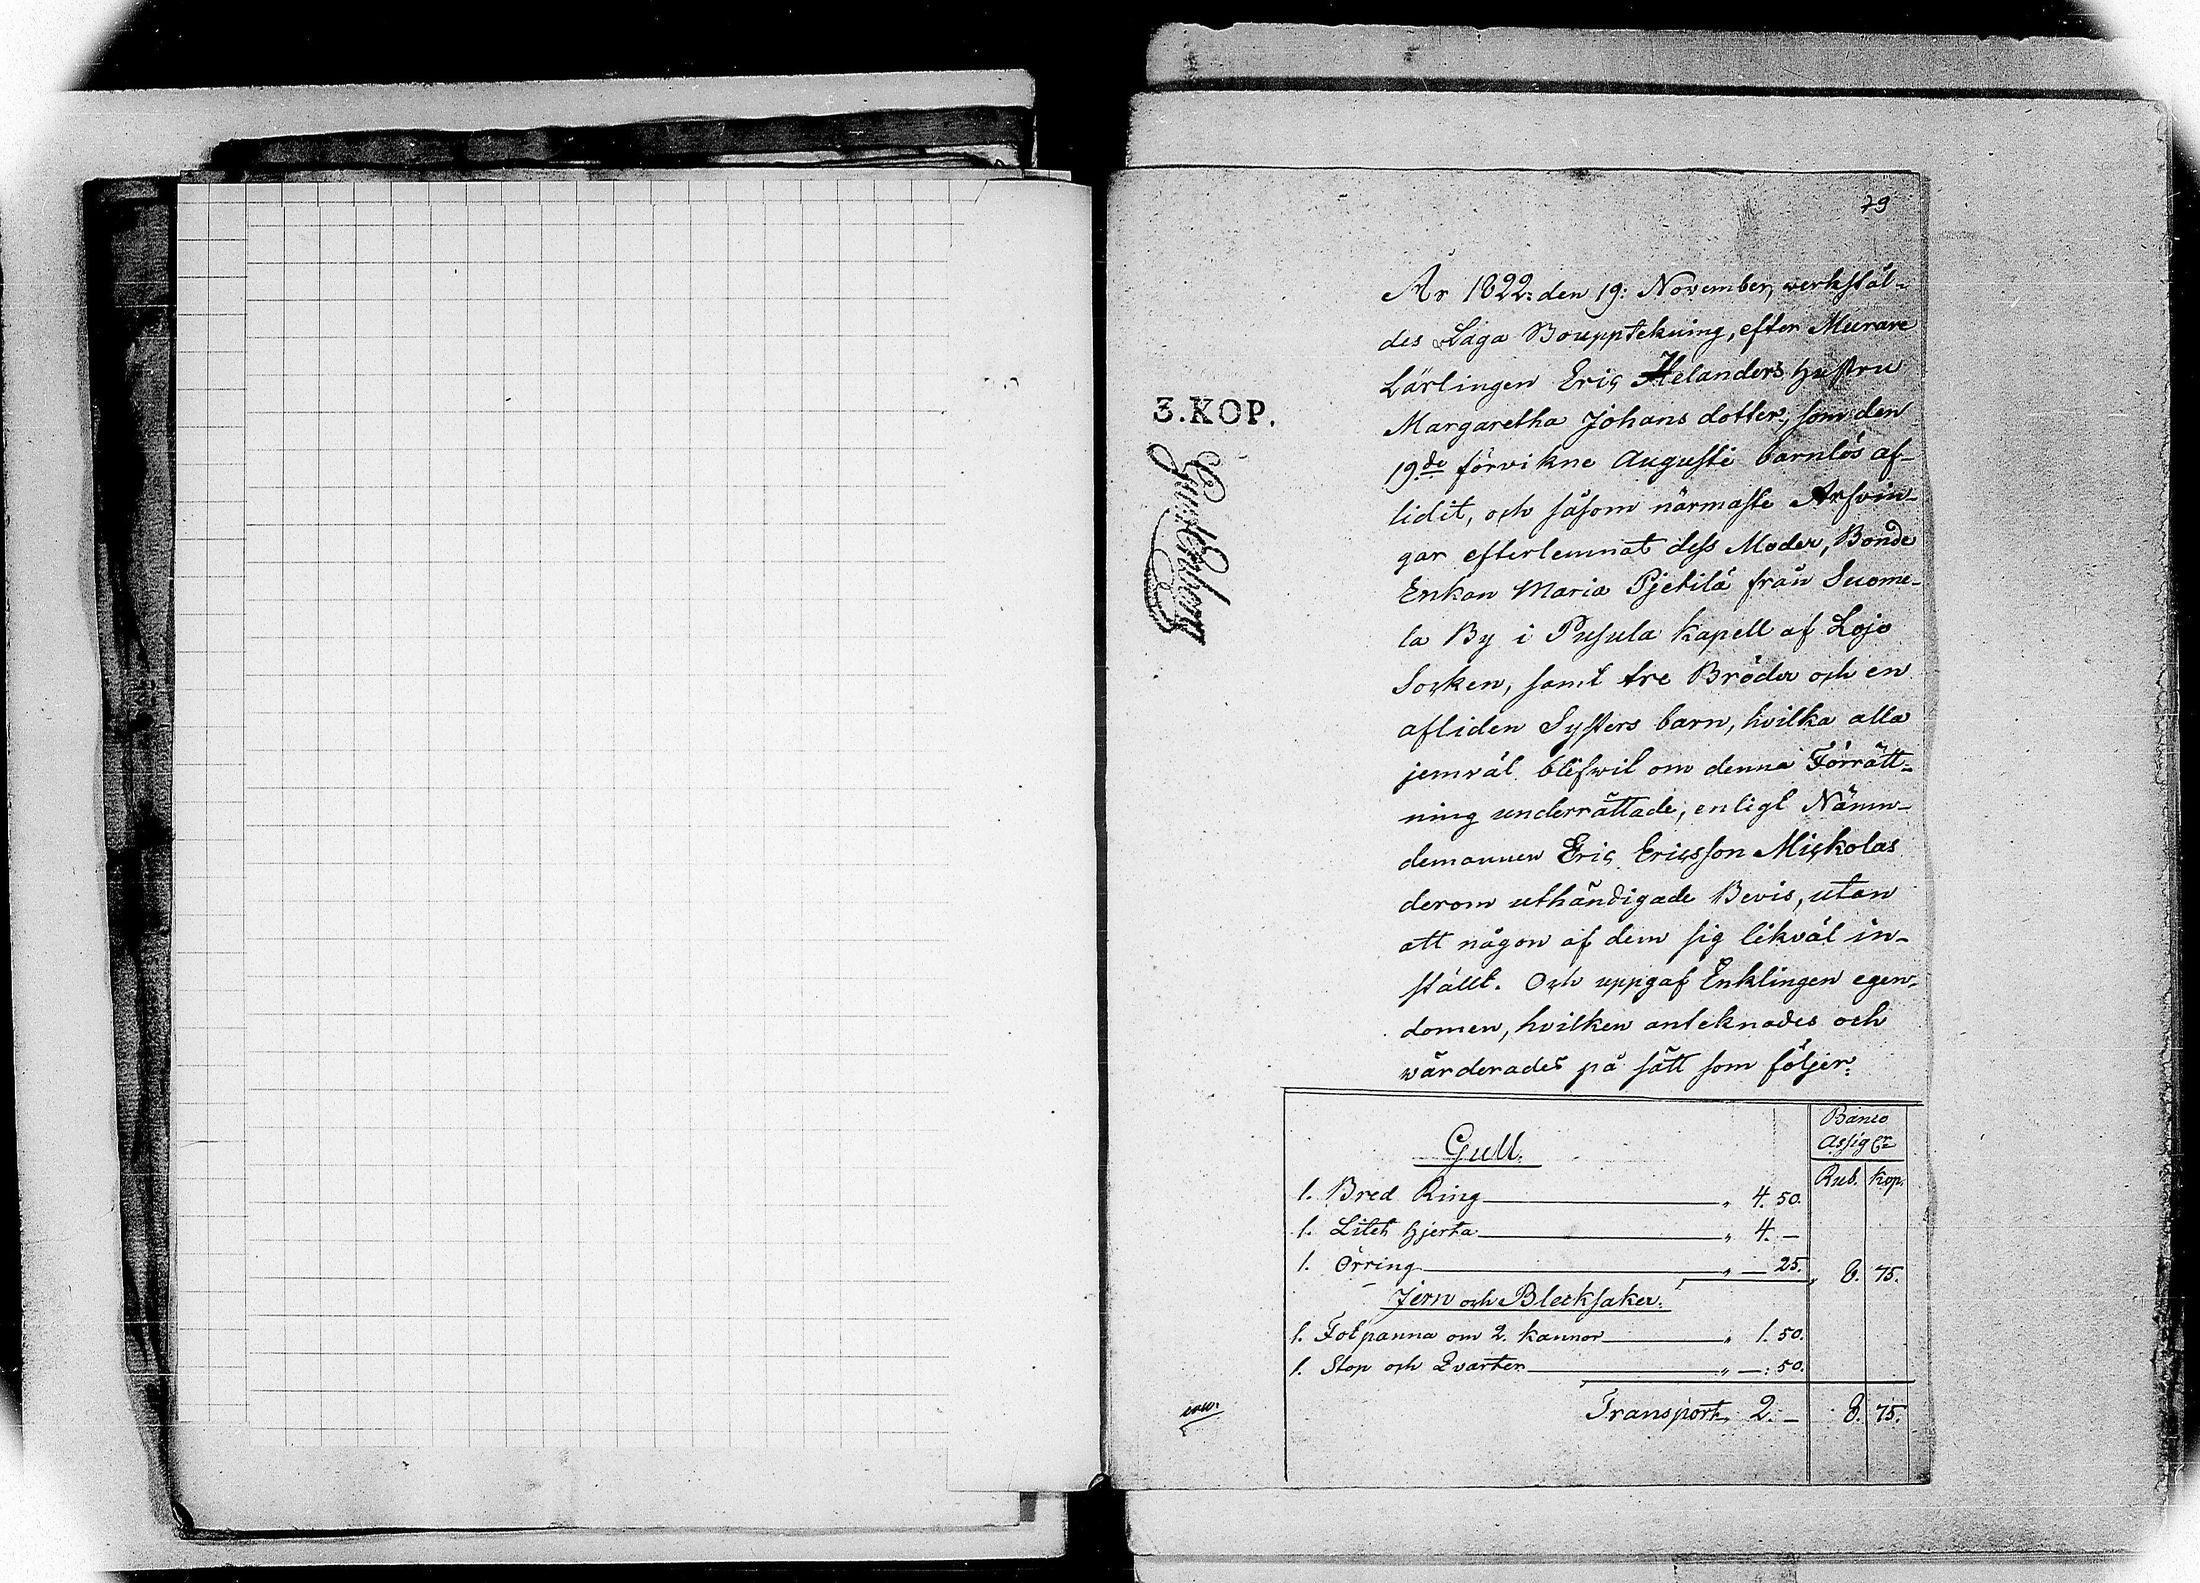 79
År 1822. den 19: November, verkstäl-
des Laga Bouppteckning, efter Murare
Lärlingen Eric Helanders Hustru
Margaretha Johans dotter, som den
19de förvikne Augusti barnlös af-
lidit, och såsom närmaste Arfvin-
gar efterlemnat dess Moder, Bonde
Enkan Maria Pjetilä från Suome-
la By i Pusula Kapell af Lojo
Socken, samt tre Bröder och en
afliden Systers barn, hvilka alla
jemväl blifwit om denna Förrätt-
ning underrättade, enligt Nämn-
demannen Eric Ericsson Mickolas
derom uthändigade Bevis, utan
att någon af dem sig likväl in-
stält. Och uppgaf Enklingen egen-
domen, hvilken anteknades och
wärderades på sätt som följer:
3. KOP.
Banco
Assig Er
Rub. Kop.
Gull.
1. Bred Ring " 4. 50.
1. Litet Hjerta " 4. —
1. Örring " — 25. " 8. 75.
Jern och Blecksaker.
1. Fotpanna om 2. kannor " 1. 50.
1. Stop och Qvarter " —: 50.
Transport, 2. — 8. 75.